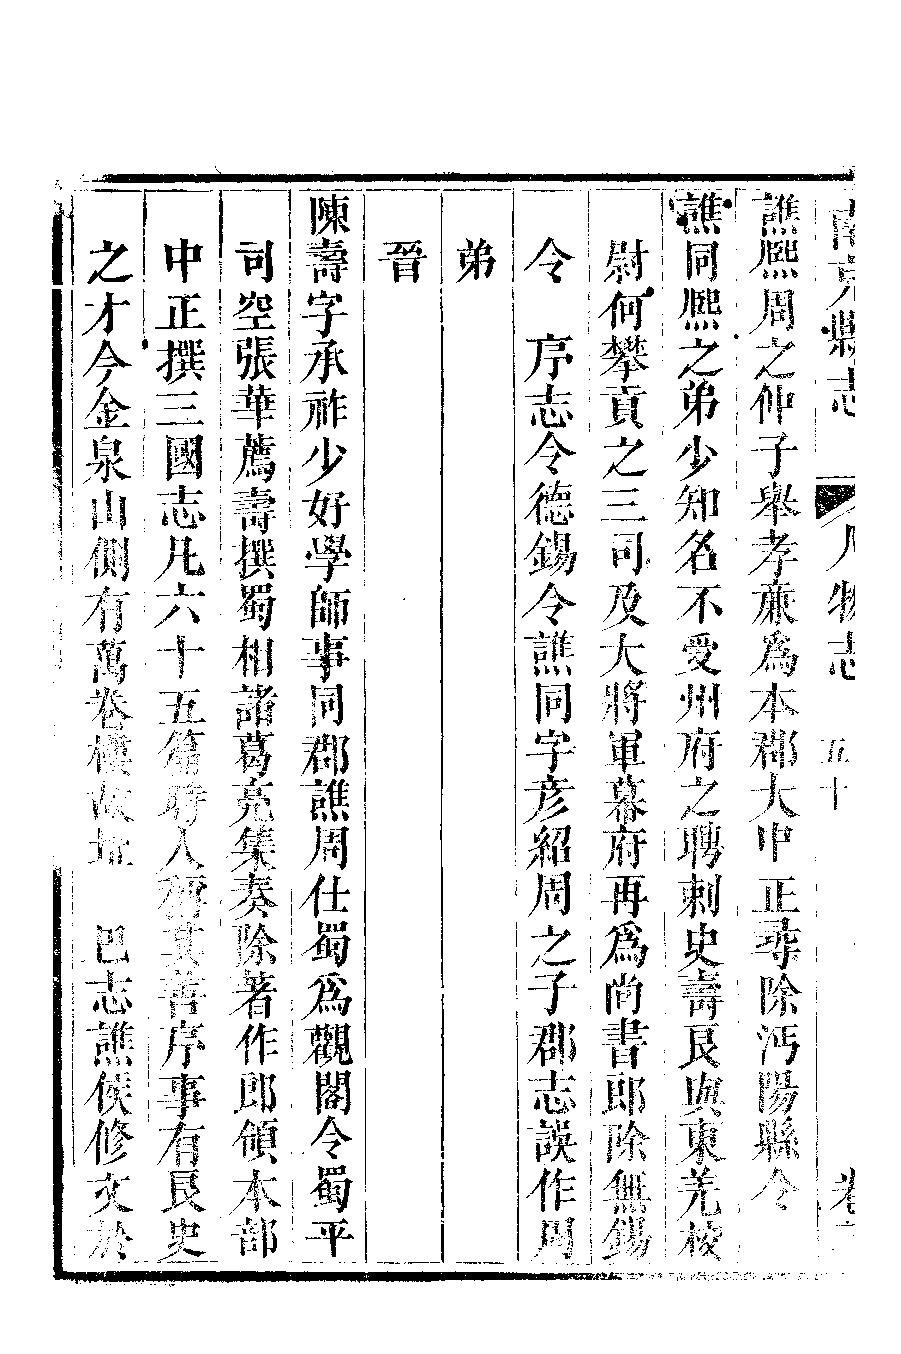 南充縣志 人物志 五十 卷
譙熙周之仲子舉孝亷爲本郡大中正尋除沔陽縣令
譙同熙之弟少知名不受州府之聘刺史壽艮與東羌校
尉何攀貢之三司及大將軍幕府再爲尚書郎除無錫
令 序志令德錫令譙同字彦紹周之子郡志誤作周
弟
晉
陳壽字承祚少好學師事同郡譙周仕蜀爲觀閣令蜀平
司空張華薦壽撰蜀相諸葛亮集奏除著作郎領本部
中正撰三國志凡六十五篇時人稱其善序事有艮史
之才今金泉山側有萬卷樓故址 巴志譙侯修文於